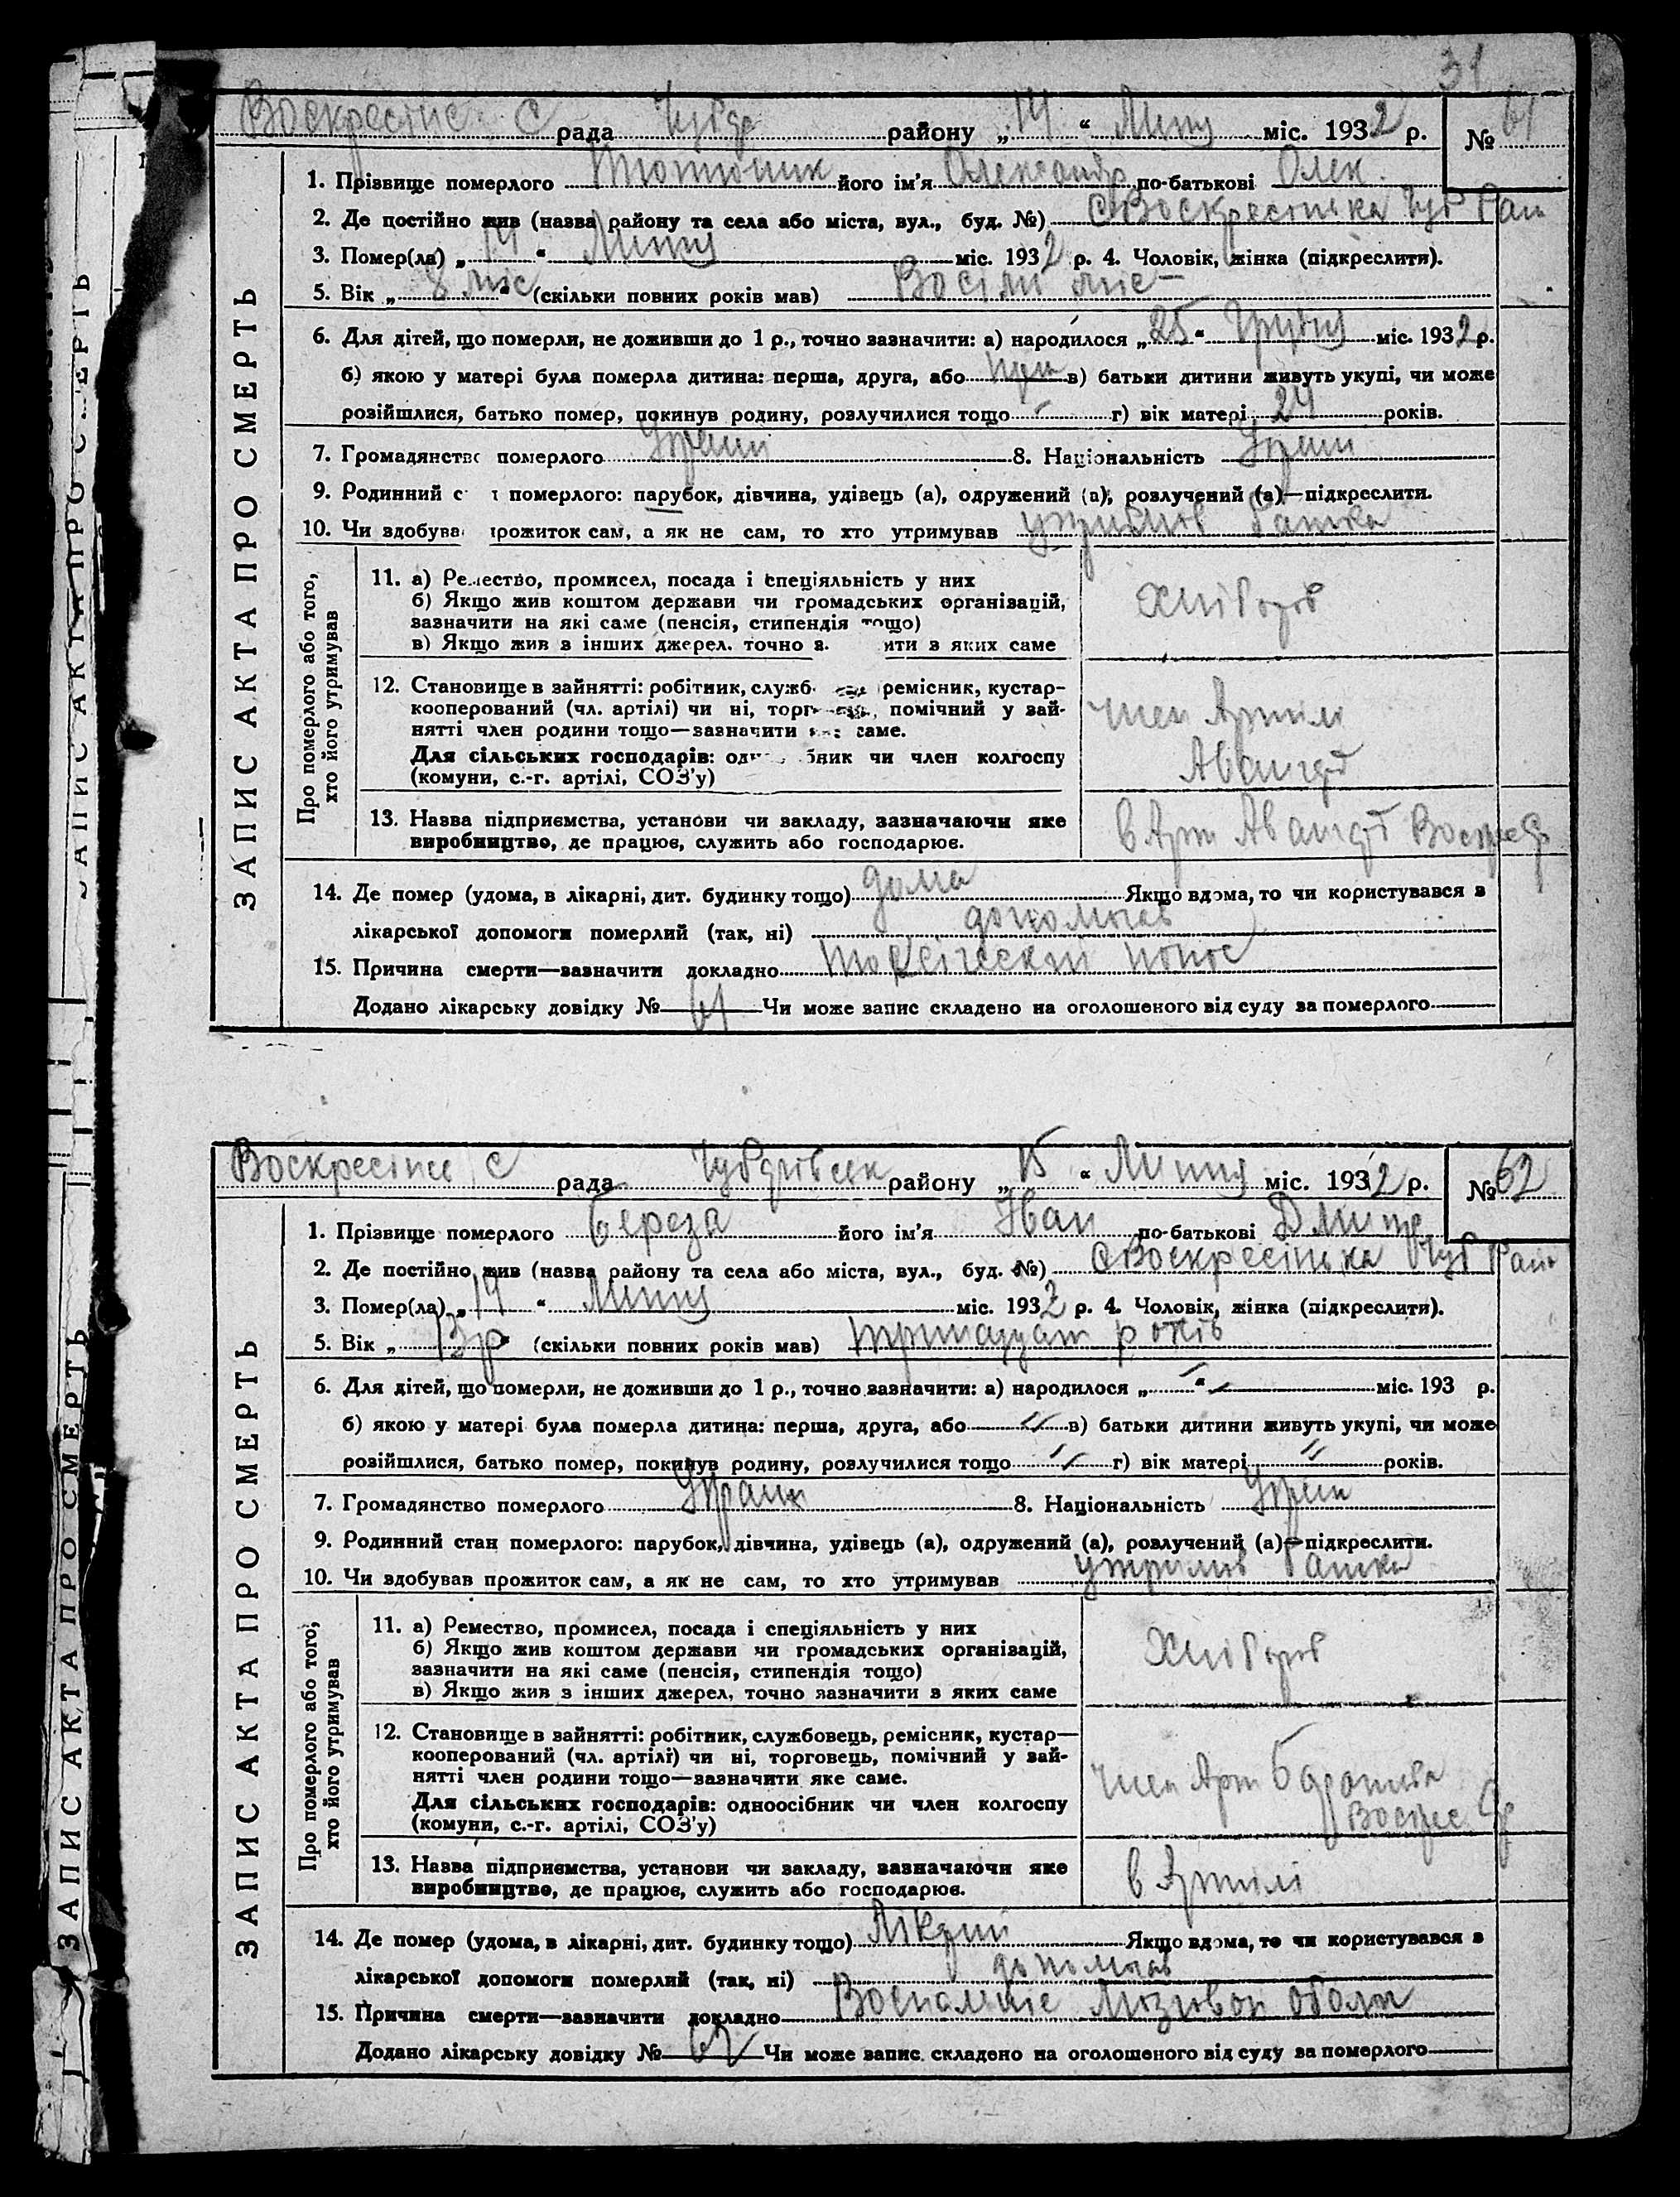 31
Воскресінс С рада Чубар району „14“ Липня міс. 1932 р. № 61
ЗАПИС АКТА ПРО СМЕРТЬ
1. Прізвище померлого Тютюник його ім’я Олександр по-батькові Олек.
2. Де постійно жив (назва району та села або міста, вул., буд. №) с Воскресінька Чуб Рай
3. Помер(ла) „14“ Липня міс. 1932 р. 4. Чоловік, жінка (підкреслити).
5. Вік „8 міс“ (скільки повних років мав) Восім міс
6. Для дітей, що померли, не доживши до 1 р., точно зазначити: а) народилося „25“ Грудня міс. 1932 р.
б) якою у матері була померла дитина: перша, друга, або в) батьки дитини живуть укупі, чи може
розійшлися, батько помер, покинув родину, розлучилися тощо г) вік матері 24 років.
7. Громадянство померлого Украин 8. Національність Украин
9. Родинний с т померлого: парубок, дівчина, удівець (а), одружений (а), розлучений (а)—підкреслити.
10. Чи здобува прожиток сам, а як не сам, то хто утримував утримов батька
Про померлого або того, хто його утримував
11. а) Ремество, промисел, посада і спеціяльність у них
б) Якщо жив коштом держави чи громадських організацій,
зазначити на які саме (пенсія, стипендія тощо)
в) Якщо жив з інших джерел. точно з ити з яких саме
Хлібороб
12. Становище в зайнятті: робітник, служб ремісник, кустар-
кооперований (чл. артілі) чи ні, торг , помічний у зай-
нятті член родини тощо—зазначити саме.
Для сільських господарів: од бник чи член колгоспу
(комуни, с.-г. артілі, СОЗ’у)
член Артилі
Авангард
13. Назва підприємства, установи чи закладу, зазначаючи яке
виробництво, де працює, служить або господарює.
в Арт Авангард
14. Де помер (удома, в лікарні, дит. будинку тощо) дома Якщо вдома, то чи користувався з
лікарської допомоги померлий (так, ні)
15. Причина смерти—зазначити докладно понос
Додано лікарську довідку № 61 Чи може запис складено на оголошеного від суду за померлого
Воскресінс С рада району „15“ Липня міс. 1932 р. № 62
ЗАПИС АКТА ПРО СМЕРТЬ
1. Прізвище померлого Береза його ім’я Іван по-батькові Дмитр
2. Де постійно жив (назва району та села або міста, вул., буд. №) с Воскресінька Чуб Рай
3. Помер(ла) „14“ Липня міс. 1932 р. 4. Чоловік, жінка (підкреслити).
5. Вік „13 р“ (скільки повних років мав) тринадцат років
6. Для дітей, що померли, не доживши до 1 р., точно зазначити: а) народилося „ “ міс. 193 р.
б) якою у матері була померла дитина: перша, друга, або в) батьки дитини живуть укупі, чи може
розійшлися, батько помер, покинув родину, розлучилися тощо г) вік матері " років.
7. Громадянство померлого Украин 8. Національність Украин
9. Родинний стан померлого: парубок, дівчина, удівець (а), одружений (а), розлучений (а)—підкреслити.
10. Чи здобував прожиток сам, а як не сам, то хто утримував утримов батька
Про померлого або того, хто його утримував
11. а) Ремество, промисел, посада і спеціяльність у них
б) Якщо жив коштом держави чи громадських організацій,
зазначити на які саме (пенсія, стипендія тощо)
в) Якщо жив з інших джерел, точно зазначити з яких саме
Хлібороб
12. Становище в зайнятті: робітник, службовець, ремісник, кустар—
кооперований (чл. артілі) чи ні, торговець, помічний у зай-
нятті член родини тощо—зазначити яке саме.
Для сільських господарів: одноосібник чи член колгоспу
(комуни, с.-г. артілі, СОЗ’у)
член Арт
13. Назва підприємства, установи чи закладу, зазначаючи яке
виробництво, де працює, служить або господарює.
в Артилі
14. Де помер (удома, в лікарні, дит. будинку тощо) Якщо вдома, то чи користувався з
лікарської допомоги померлий (так, ні)
15. Причина смерти—зазначити докладно
Додано лікарську довідку № 62 Чи може запис складено на оголошеного від суду за померлого
ЗАПИС АКТА ПРО СМЕРТЬ